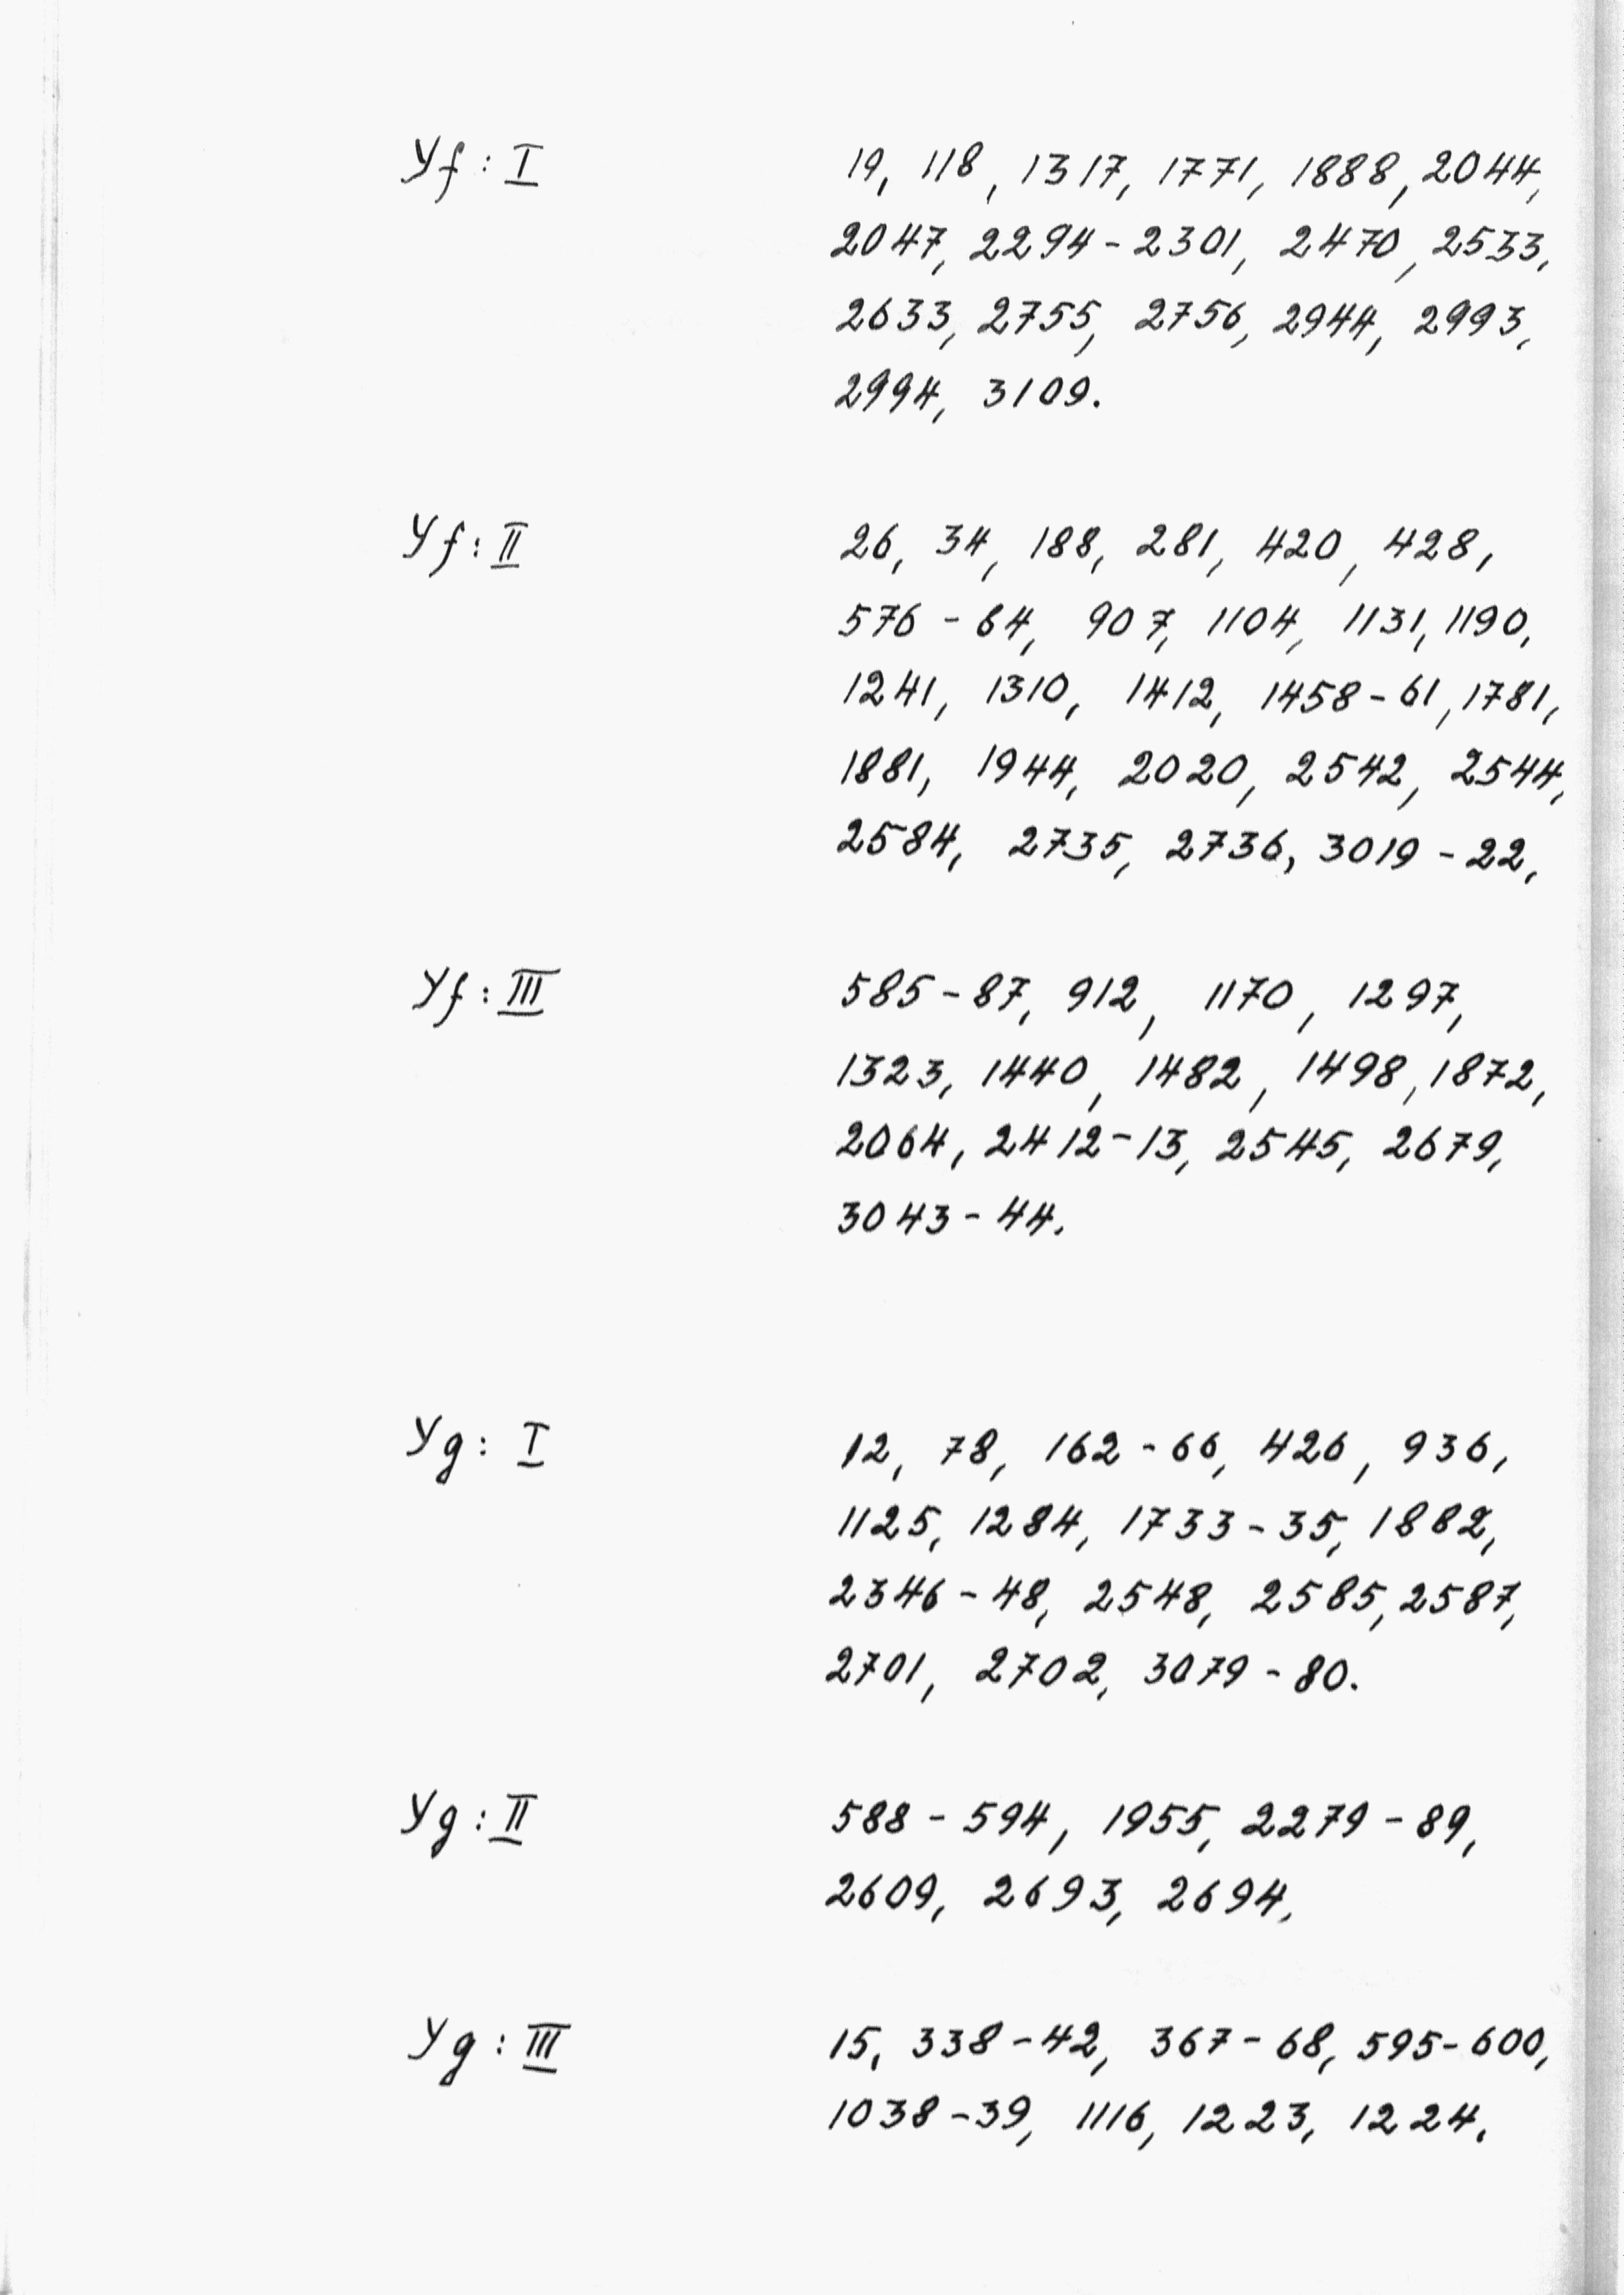 Yf : I 19, 118, 1317, 1771, 1888, 2044,
2047, 2294-2301, 2470, 2533,
2633, 2755, 2756, 2944, 2993,
2994, 3109.
Yf : II 26, 34, 188, 281, 420, 428,
576 - 84, 907, 1104, 1131, 1190,
1241, 1310, 1412, 1458-61, 1781,
1881, 1944, 2020, 2542, 2544,
2584, 2735, 2736, 3019 - 22,
Yf : III 585-87, 912, 1170, 1297,
1323, 1440, 1482, 1498, 1872,
2064, 2412-13, 2545, 2679,
3043 - 44.
Yg : I 12, 78, 162 - 66, 426, 936,
1125, 1284, 1733-35, 1882,
2346 - 48, 2548, 2585, 2587,
2701, 2702, 3079 - 80.
Yg : II 588 - 594, 1955, 2279 - 89,
2609, 2693, 2694,
Yg : III 15, 338 - 42, 367 - 68, 595-600,
1038 - 39, 1116, 1223, 1224,